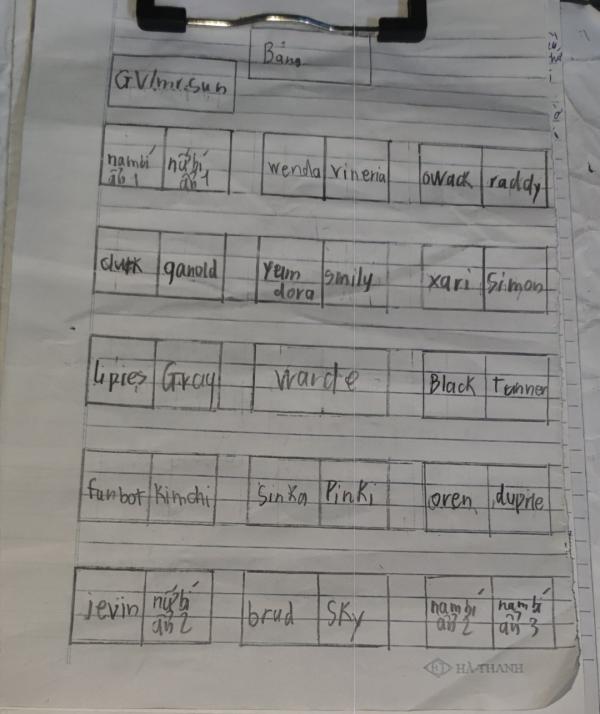 Bảng
GV/mr.sun
nam bí ẩn 1 nữ bí ẩn 1 wenda vineria owack raddy
clukk ganold yum dora smily xari Simon
lipies Gray warde Black tunner
funbot kimchi Sinka Pinki oren duprie
jevin nữ bí ẩn 2 brud Sky nam bí ẩn 2 nam bí ẩn 3
HÀ THANH